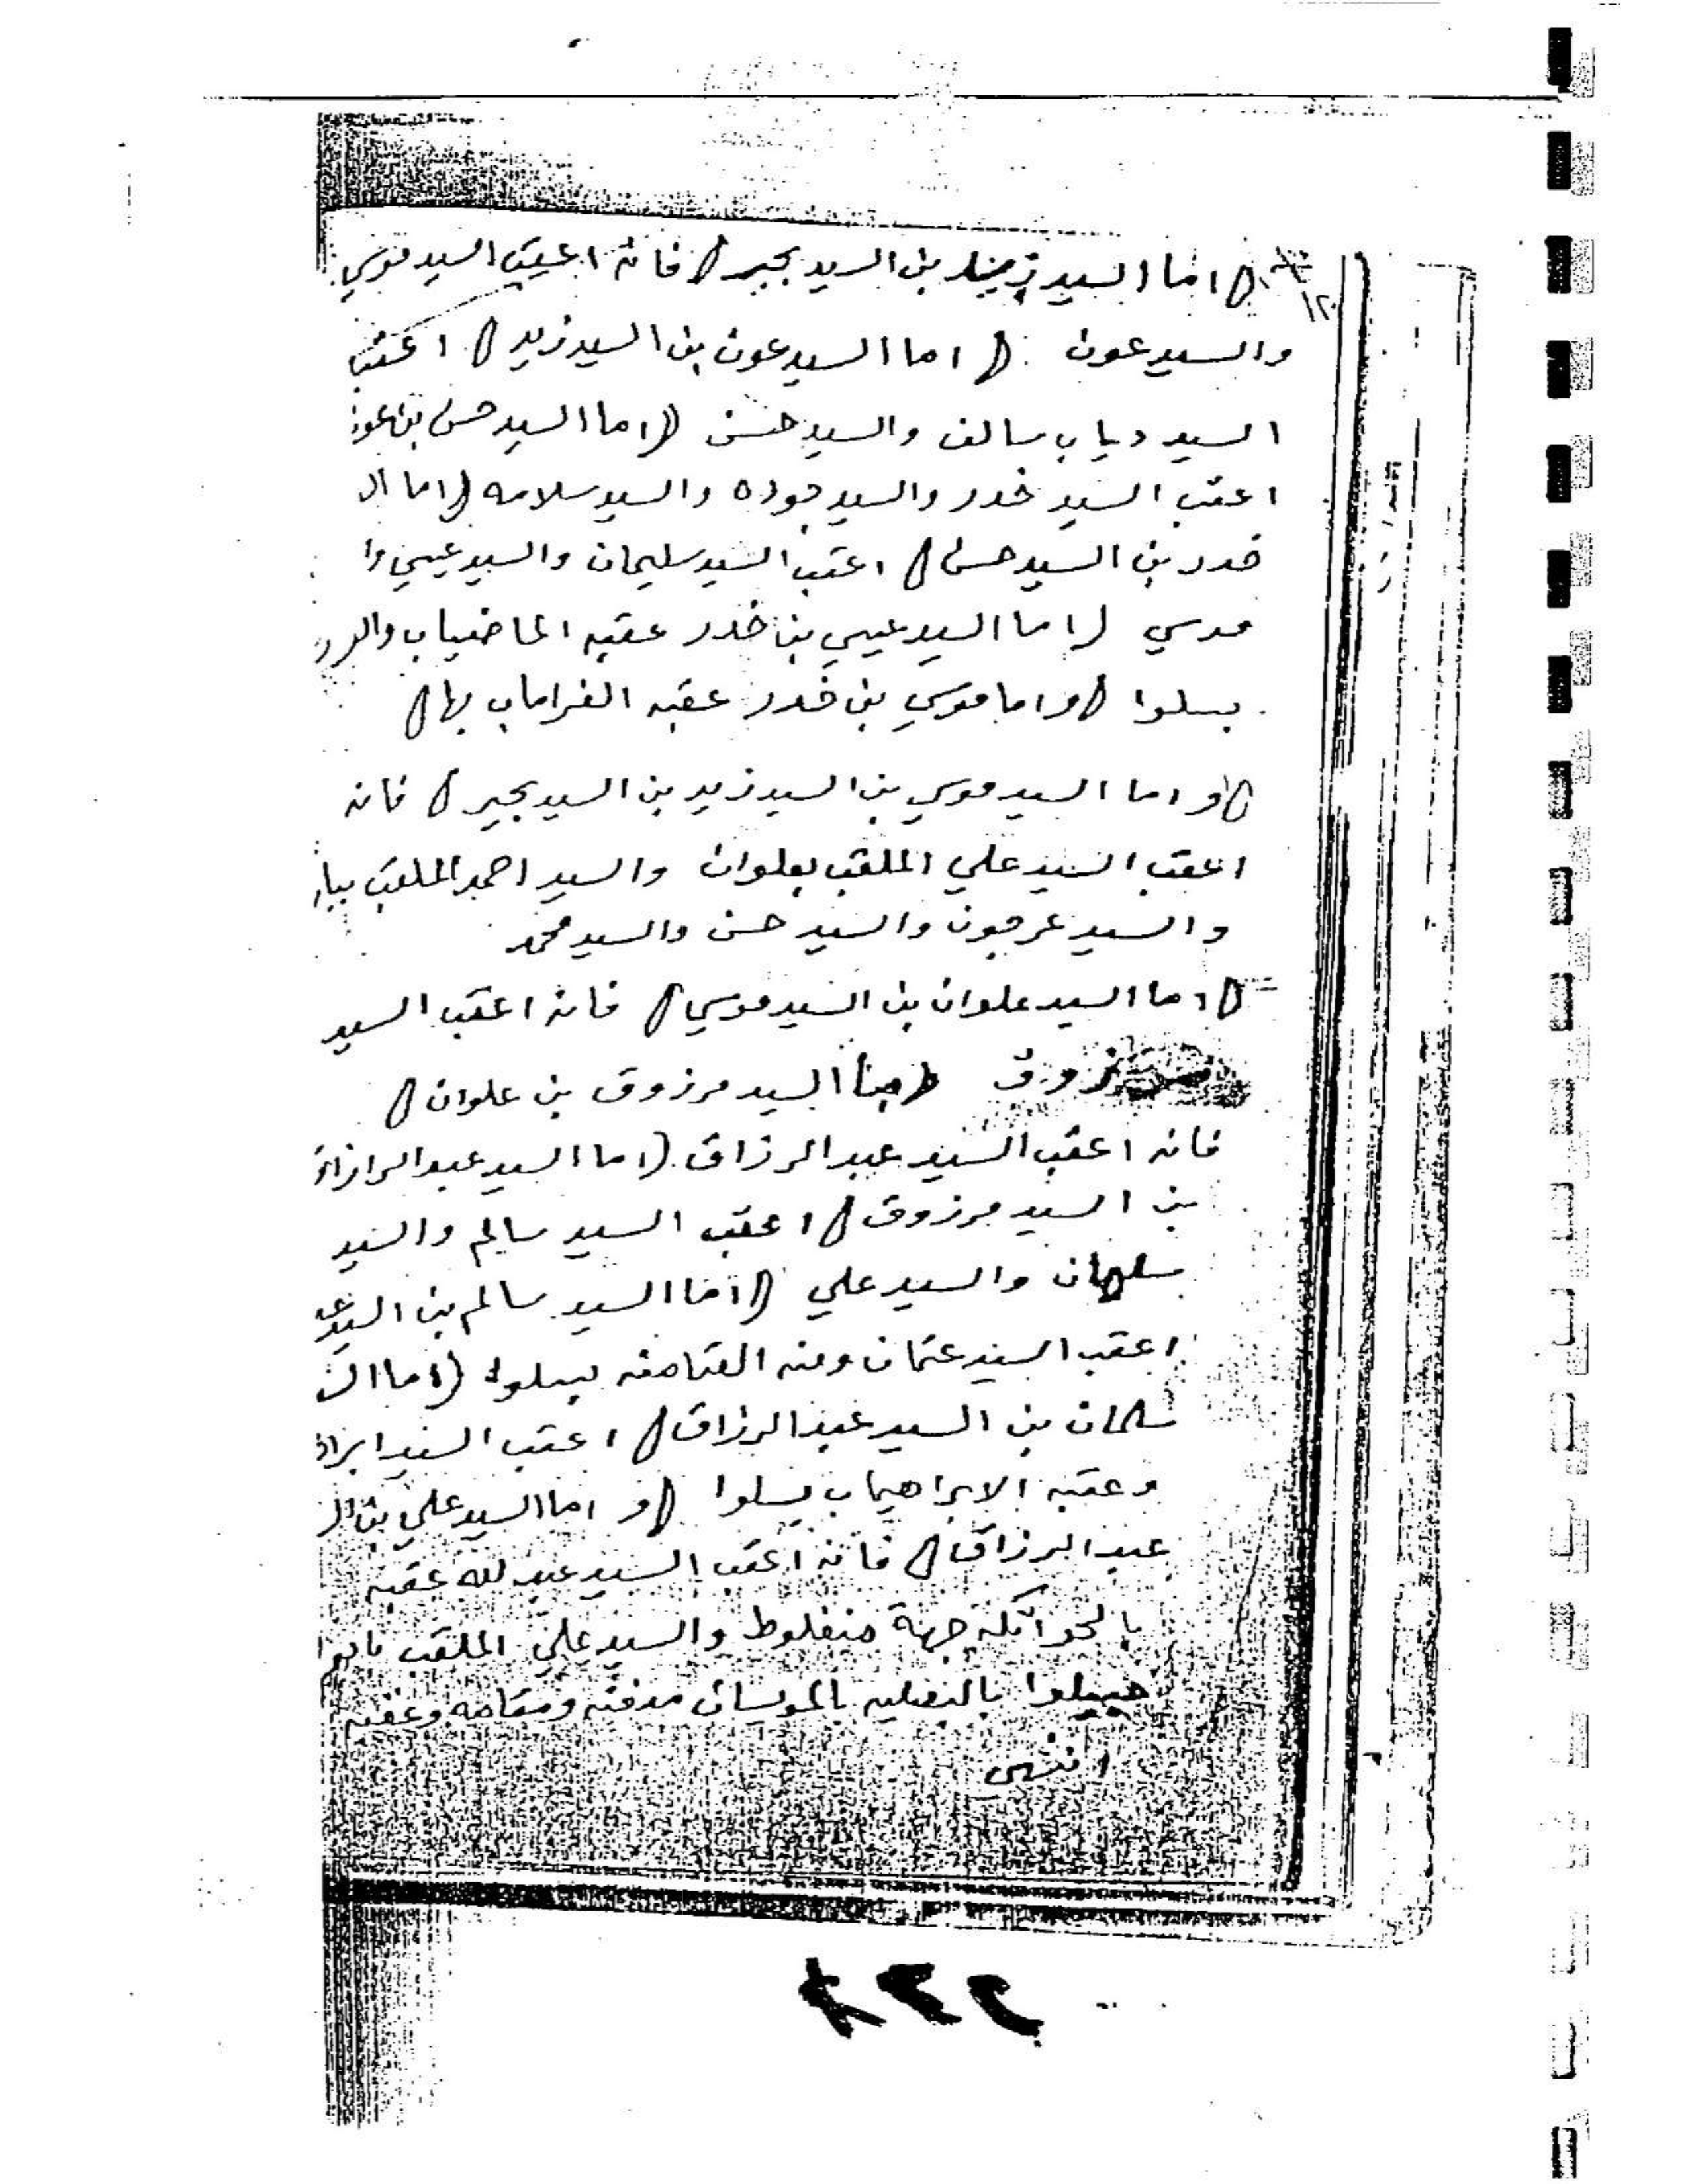 ١٢
( اما السيد زيد بن السيد بحير ( فانه اعقب السيد موسي
والسيد عون ( اما السيد عون بن السيد زيد ( اعقب
السيد دياب سالف والسيد حسن ( اما السيد حسن بن عون
اعقب السيد خدر والسيد جوده والسيد سلامه ( اما الـ
خدر بن السيد حسن ( اعقب السيد سليمان والسيد عيسي وا
موسي ( اما السيد عيسي بن خدر عقبه الماضياب
ببسلوا ( واما موسي بن خدر عقبه الغراماب بها (
( واما السيد موسي بن السيد زيد بن السيد بحير ( فانه
اعقب السيد علي الملقب بعلوان والسيد احمد الملقب
والسيد عرجون والسيد حسن والسيد محمد
( اما السيد علوان بن السيد موسي ( فانه اعقب السيد
مرزوق السيد مرزوق بن علوان (
فانه اعقب السيد عبد الرزاق ( اما السيد عبد الرازاق
بن السيد مرزوق ( اعقب السيد سالم والسيد
سلمان والسيد علي ( اما السيد سالم بن السيد
اعقب السيد عثمان ومنه العتامنه ببسلوا ( اما الـ
سلمان بن السيد عبد الرزاق ( اعقب السيد
وعقبه الابراهيماب ببسلوا ( و اما السيد علي بن
عبد الرزاق ( فانه اعقب السيد عبد الله عقبه
بالحواتكه جهة منفلوط والسيد علي الملقب
مدفنه ومقامه وعقبه
انتهى